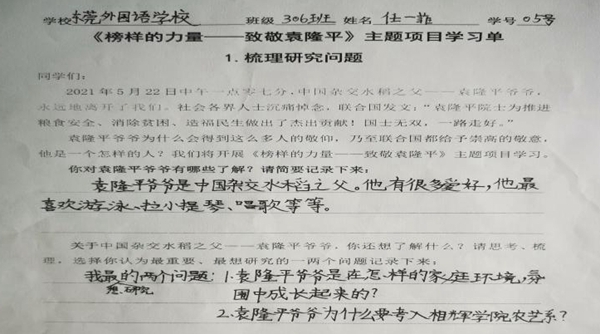 学校 东莞外国语学校 班级 306班 姓名 任一菲 学号 05号
《榜样的力量——致敬袁隆平》主题项目学习单
1. 梳理研究问题
同学们：
2021年5月22日中午一点零七分，中国杂交水稻之父——袁隆平爷爷，
永远地离开了我们。社会各界人士沉痛悼念，联合国发文：“袁隆平院士为推进
粮食安全、消除贫困、造福民生做出了杰出贡献！国士无双，一路走好。”
袁隆平爷爷为什么会得到这么多人的敬仰，乃至联合国都给予崇高的敬意，
他是一个怎样的人？我们将开展《榜样的力量——致敬袁隆平》主题项目学习。
你对袁隆平爷爷有哪些了解？请简要记录下来：
袁隆平爷爷是中国杂交水稻之父。他有很多爱好，他最
喜欢游泳、拉小提琴、唱歌等等。
关于中国杂交水稻之父——袁隆平爷爷，你还想了解什么？请思考、梳
理，选择你认为最重要、最想研究的一两个问题记录下来：
我最想研究的两个问题：1.袁隆平爷爷是在怎样的家庭环境氛
围中成长起来的？
2.袁隆平爷爷为什么要考入相辉学院农艺系？